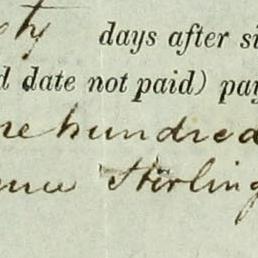 days after si
date not paid) pay
hundred
Sterling